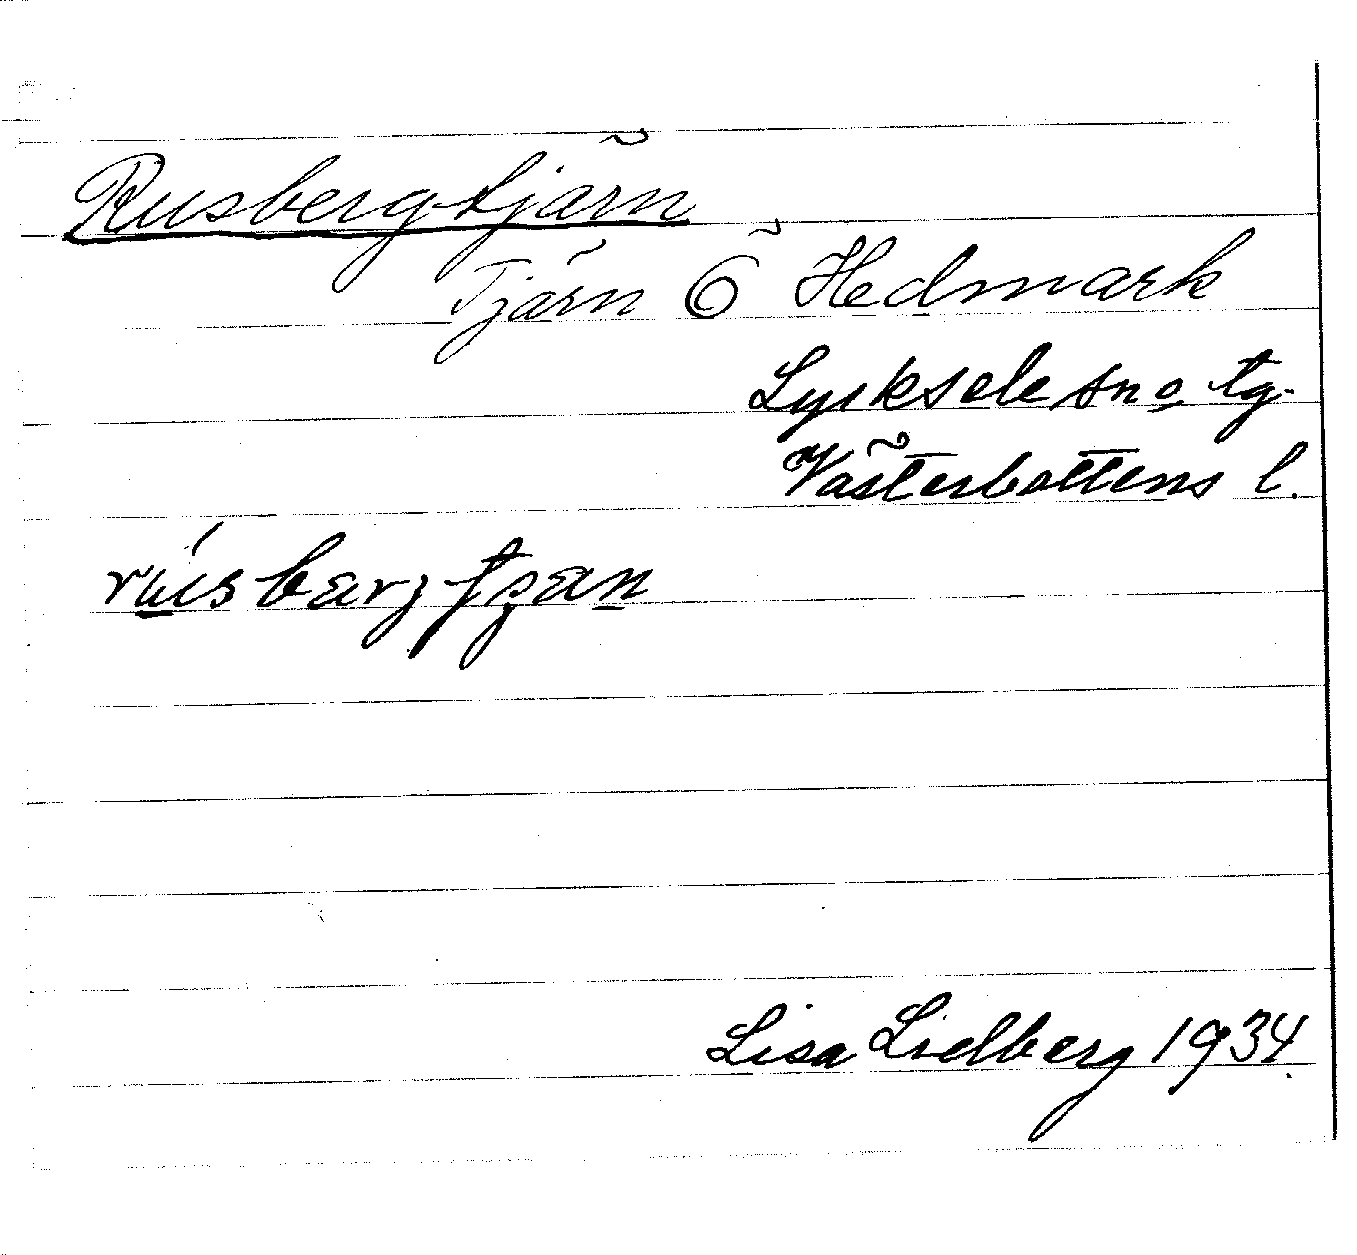 Rusbergtjärn
Tjärn Ö Hedmark
Lycksele sn o tg.
Västerbottens l.
Lisa Lidberg 1934.